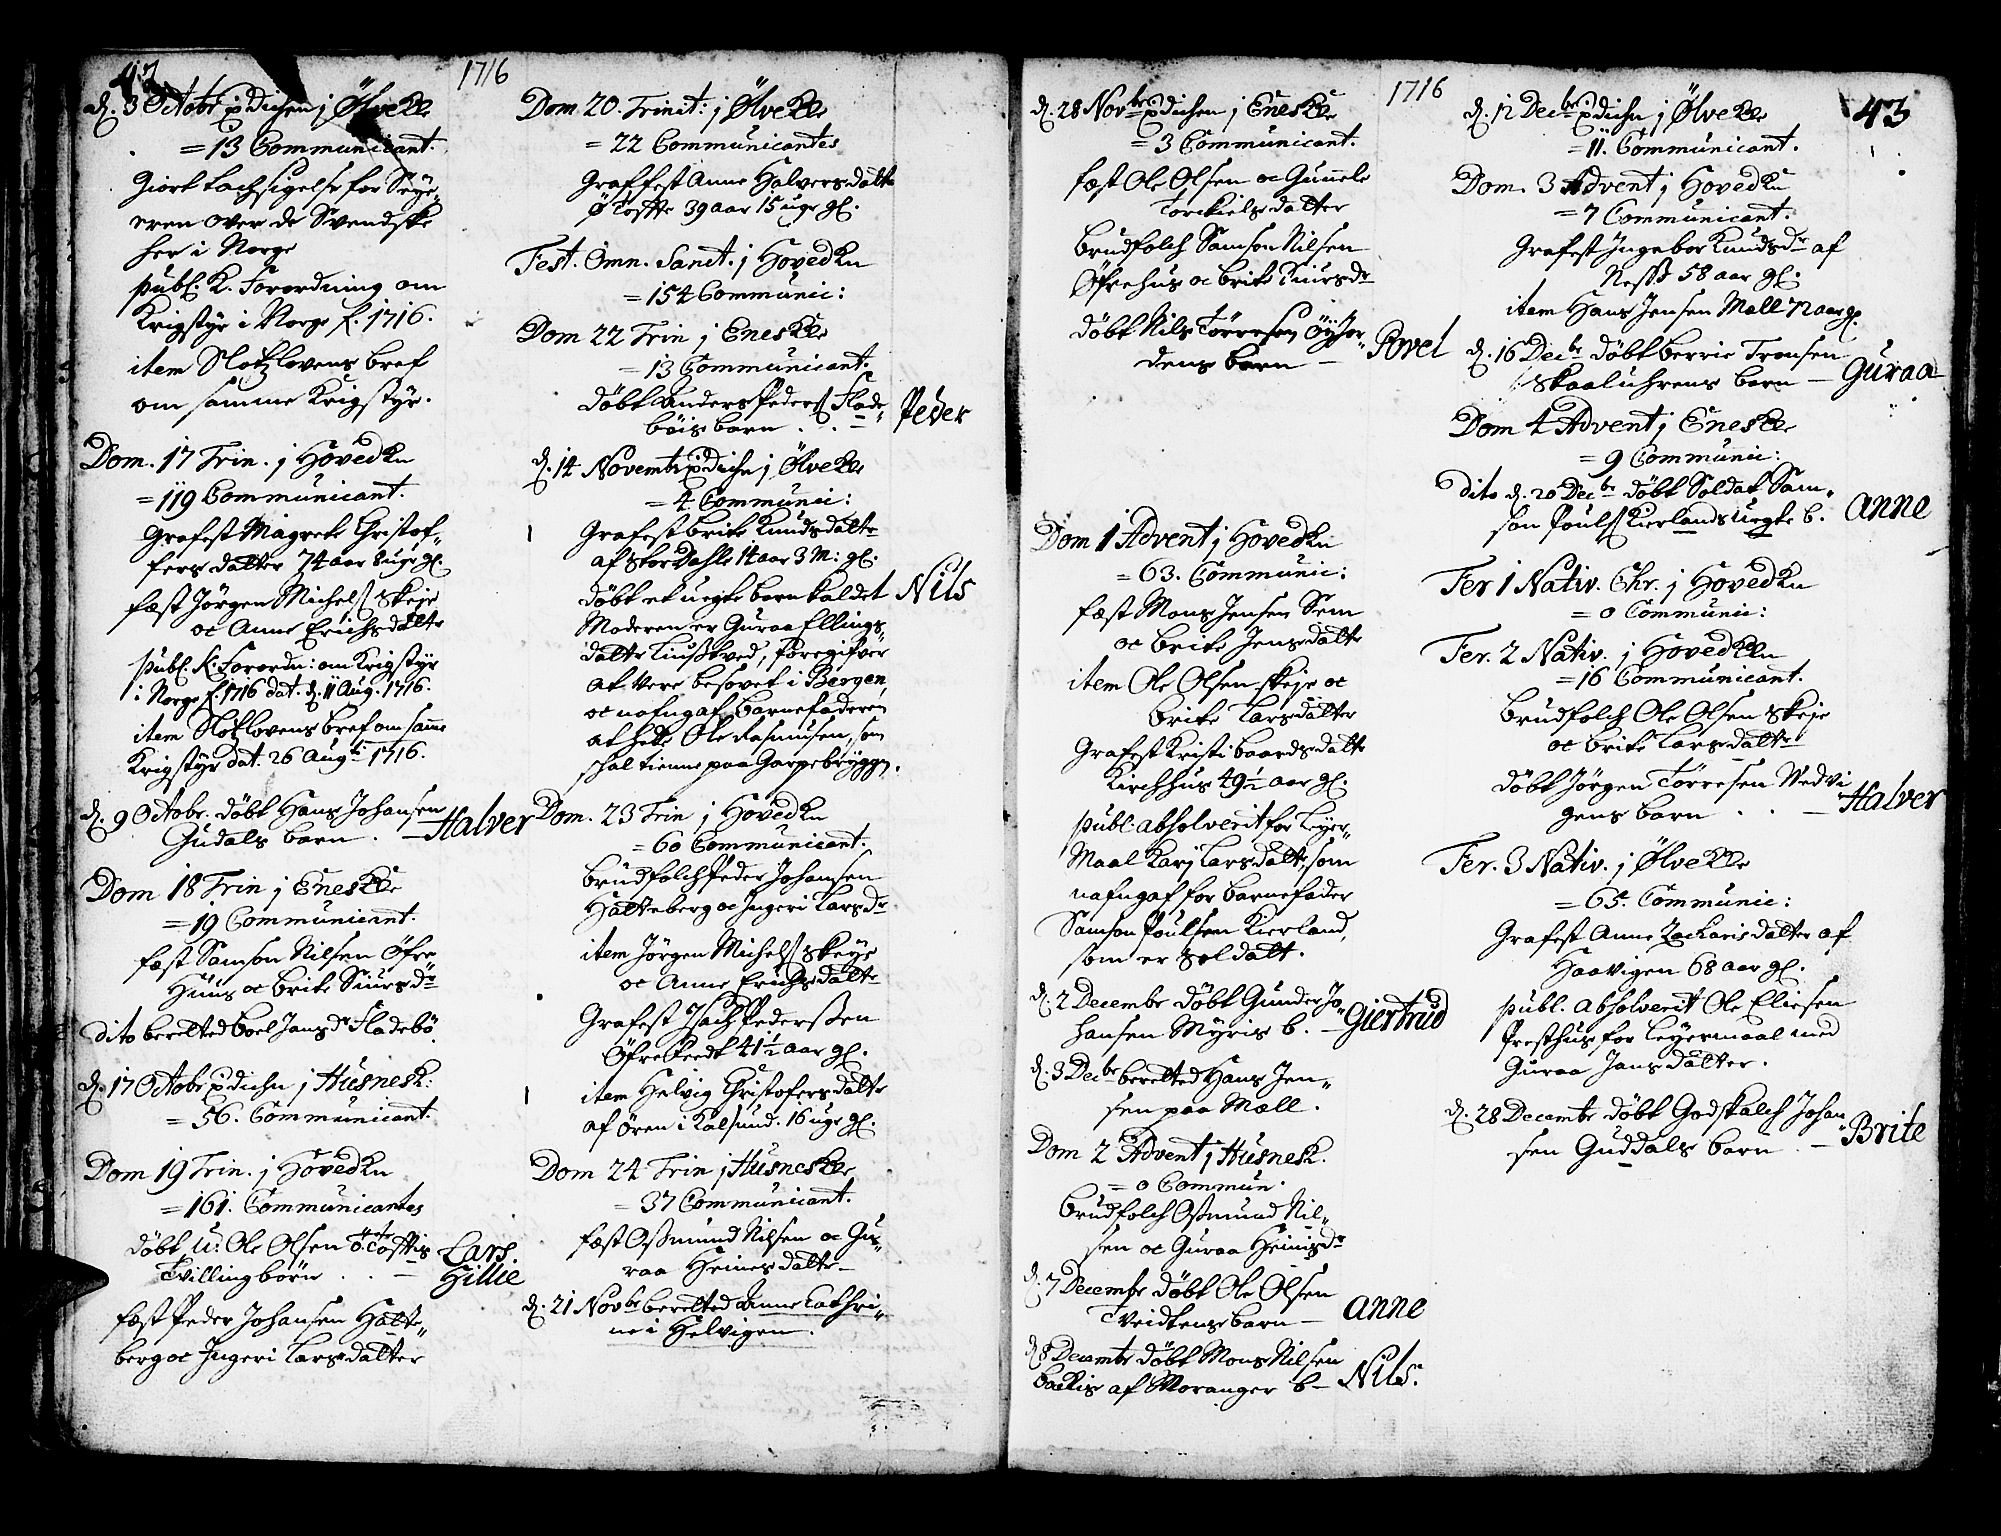 42
1716
d. 3 Octobr prædichen j Ølve Kke
= 13 Communicant.
giort tachsigelse for Seye„
eren over de Svendske
her i Norge
publ. K. Forordning om
Krigstyr i Norge f. 1716.
item Slotzlovens bref
om samme Krigstyr.
Dom. 17 Trin. j HovedKn
= 119 Communicant.
grafest Magrete Christof„
fers datter 74 aar 8 uge gl.
fæst Jörgen Michels. Skeje
oc Anne Erichsdatter
publ. K. Forordn: om Krigstyr
i Norge f. 1716 dat. d. 11 Aug. 1716.
item Slotzlovens bref om samme
Krigstyr dat. 26 Augti 1716.
d. 9 Octobr. döbt Hans Johansen
Gudals barn . — Halver
Dom 18 Trin j Enes Kke
= 19 Communicant.
fæst Samson Nilsen Øfre
Huus oc Brite Siursdr
dito beretted Boel Jansdr Fladebö.
d. 17 Octobr prædichn j Husnes K:
= 56. Communicant.
Dom 19 Trin. j HovedKn
= 161. Communicantes
döbt u: Ole Olsen Ö Toftis Lars.
Tvillingbörn . . — Gillie
fæst Peder Johansen Hatte„
berg oc Ingeri Larsdatter
Dom 20. Trinit: j Ølve Kke
= 22 Communicantes
graffest Anne Halversdatter
Ö Toftte 39 aar 15 uge gl.
Fest. Omn. Sanct. j HovedKn
= 154 Communic:
Dom 22 Trin j Enes Kke
= 13 Communicant.
döbt Anders Peders. Flade„
böis barn . . — Peder
d. 14 Novembr prædichn j Ølve Kke
= 4 Communic:
grafest Brite Knudsdatter
af Skor Dahle 14 aar 3 M: gl.
döbt et uegte barn kaldet Nils
Moderen er Guraa Ellings„
datter Liusskved, foregifver
at vere besovet i Bergen,
oc nafngaf barnefaderen
at hede Ole Rasmusen, som
schal tienne paa Garpebryggen.
Dom. 23 Trin j HovedKn
= 60 Communicant.
Brudfolch Peder Johansen
Hatteberg oc Ingeri Larsdr
item Jörgen Michels. Skeye
oc Anne Erichsdatter
Grafest Isach Pederssen
Øfre Feedt 41½ aar gl.
item Helvig Christofersdatter
af Øren i Kalsund. 16 uge gl.
Dom 24 Trin j Husnes Kke
= 37 Communicant.
fæst Osmund Nilsen oc Gu„
raa Heinesdatter
d. 21 Novbr beretted Anne Cathri„
ne i Helvigen.
1716
d. 28 Novbr prædichen j Enes Kke
= 3 Communicant.
fæst Ole Olsen oc Gunele
Torckielsdatter
Brudfolch Samson Nilsen
Øfrehus oc Brite Siursdr
döbt Nils Törresen Øyjor„
dens barn — Povel
Dom 1 Advent j HovedKn
= 63. Communic:
fæst Mons Jensen Sem
oc Brite Jensdatter
item Ole Olsen Skeje oc
Brite Larsdatter
Grafest Kristi Baardsdatter
Kirchhus 49½ aar gl.
publ. absolverit for Leyer„
Maal Karj Larsdatter, som
nafngaf for barnefader
Samson Poulsen Kierland,
som er Soldatt.
d. 2 Decembr döbt Gunder Jo„
hansen Myris b. — Giertrud
d. 3 Decbr berettet Hans Jen„
sen paa Mæll.
Dom 2 Advent j Husnes K.
= 0 Commun.
Brudfolch Osmund Nil„
sen oc Guraa Heinisdr
d. 7 Decembr döbt Ole Olsen
Tveidtens barn — Anne
d. 8 Decembr döbt Mons Nilsen
Backis af Moranger b — Nils.
43
d. 12 Decbr prædichn j Ølve Kke
= 11. Communicant.
Dom. 3 Advent j HovedKn
= 7 Communicant.
Grafest Ingebor Knudsdr af
Nessö 58 aar gl.
item Hans Jensen Mæll 72 aar gl.
d. 16 Decbr döbt Berrie Tronsen
Skaaluhrens barn — Guraa
Dom 4 Advent j Enes Kke
= 9 Communic:
dito d. 20 Decbr döbt Soldat Sam„
son Pouls. Kierlands uegte b. Anne
Fer 1 Nativ. Chr. j HovedKn
= 0 Communic:
Fer. 2 Nativ. j HovedKn
= 16 Communicant.
Brudfolch Ole Olsen Skeje
oc Brite Larsdatter
döbt Jörgen Törresen Nedvi
gens barn . . — Halver
Fer. 3 Nativ. j Ølve Kke
= 65. Communic:
Grafest Anne Zacharisdatter af
Haavigen 68 aar gl.
publ. absolverit Ole Eliesen
Presthus for Leyermaal med
Guraa Jansdatter.
d. 28 Decembr döbt Godskalch Johan
sen Guddals barn . — Brite